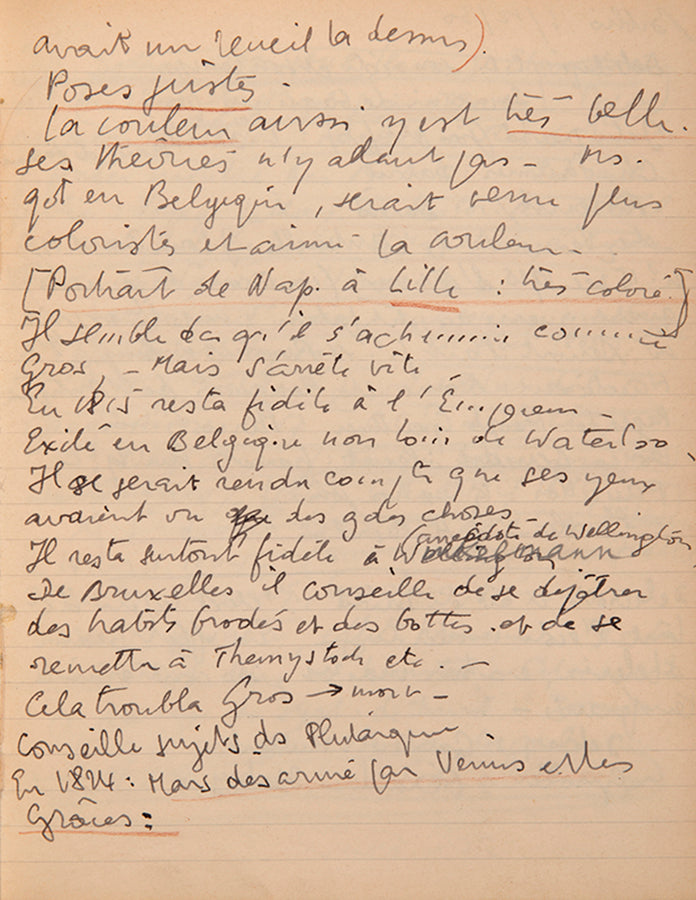 avait un recueil la dessus).
Poses justes.
La couleur aussi y est très belle.
ses théories n'y allant pas - Ms.
qd en Belgique, serait venu plus
coloriste et aimé la couleur -
[Portrait de Nap. à Lille : très coloré]
Il semble éc qu'il s'achemine comme
Gros, - Mais s'arrête vite
En 1815 resta fidèle à l'Empereur -
Exilé en Belgique non loin de Waterloo
Il se serait rendu compte que ses yeux
avaient vu des gdes choses
(anecdote de Wellington)
Il resta surtout fidèle à
De Bruxelles il conseille de se dépêtrer
des habits brodés et des bottes. et de se
remettre à Themystocle etc. -
Cela troubla Gros → mort -
Conseille sujets ds Plutarque
En 1824 : Mars désarmé par Vénus et les
Grâces :